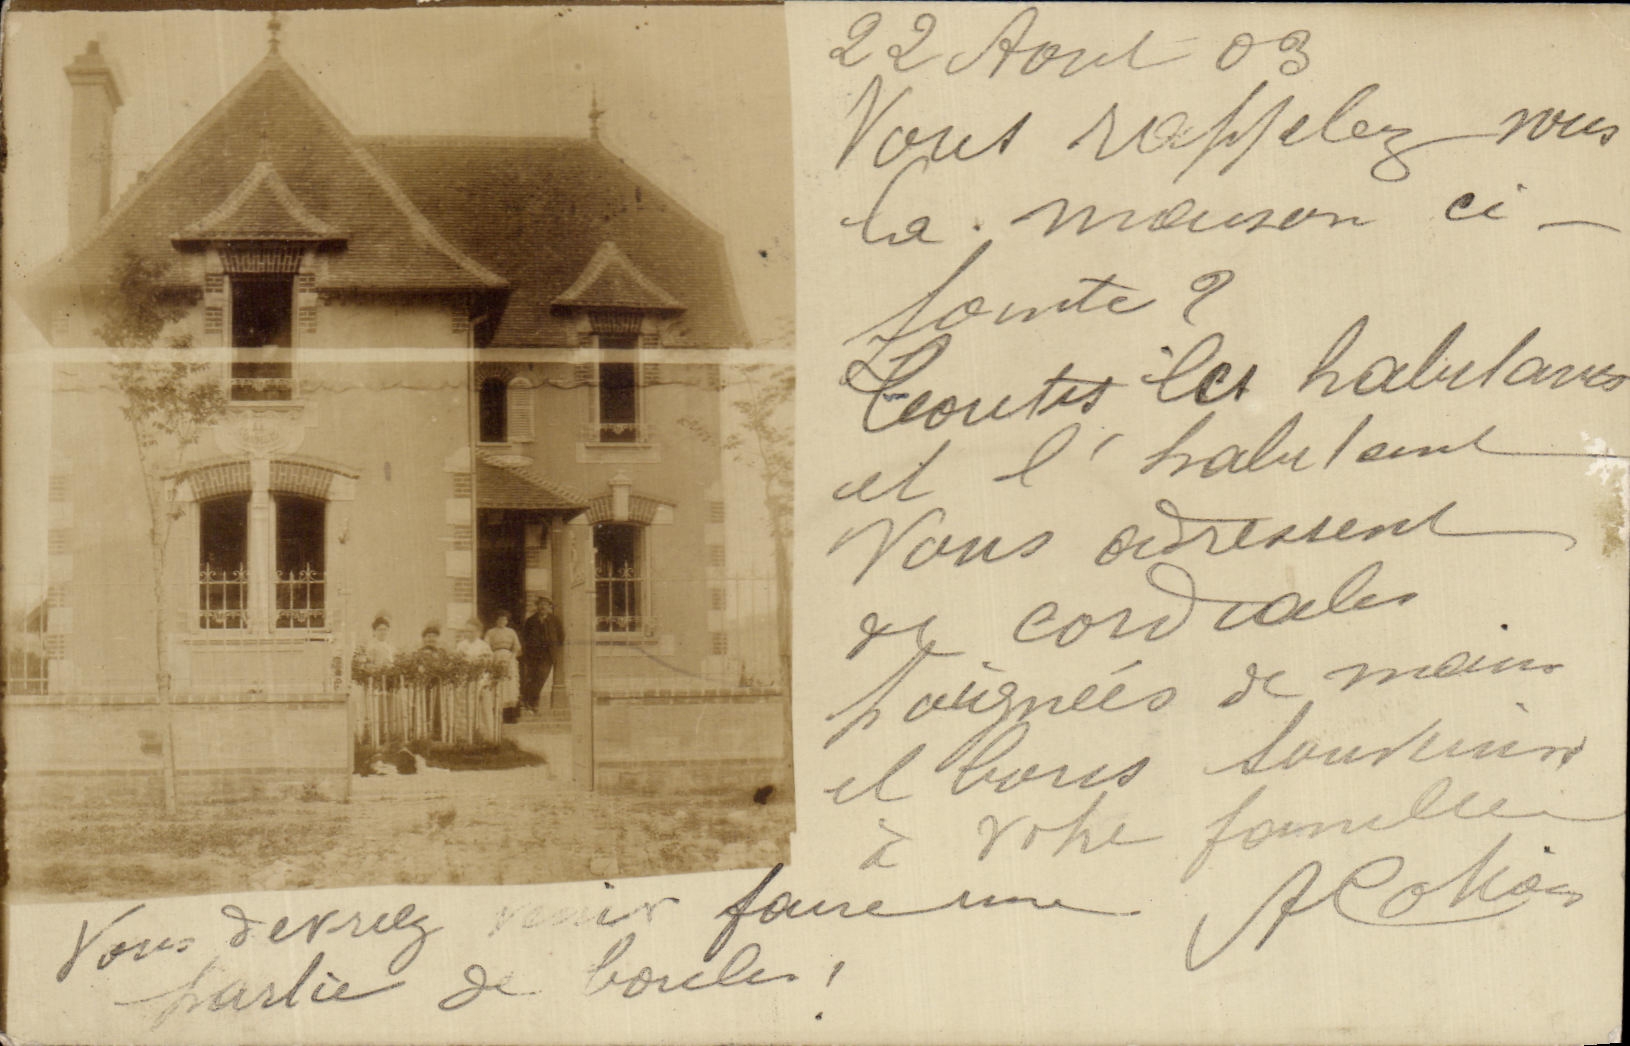 22 Aout 03
Vous rappelez vous
la maison ci-
jointe ?
Toutes les habitantes
et l'habitant
Vous adressent
de cordiales
poignées de mains
et bons souvenirs
à votre famille
Vous devriez venir faire une
partie de boules !